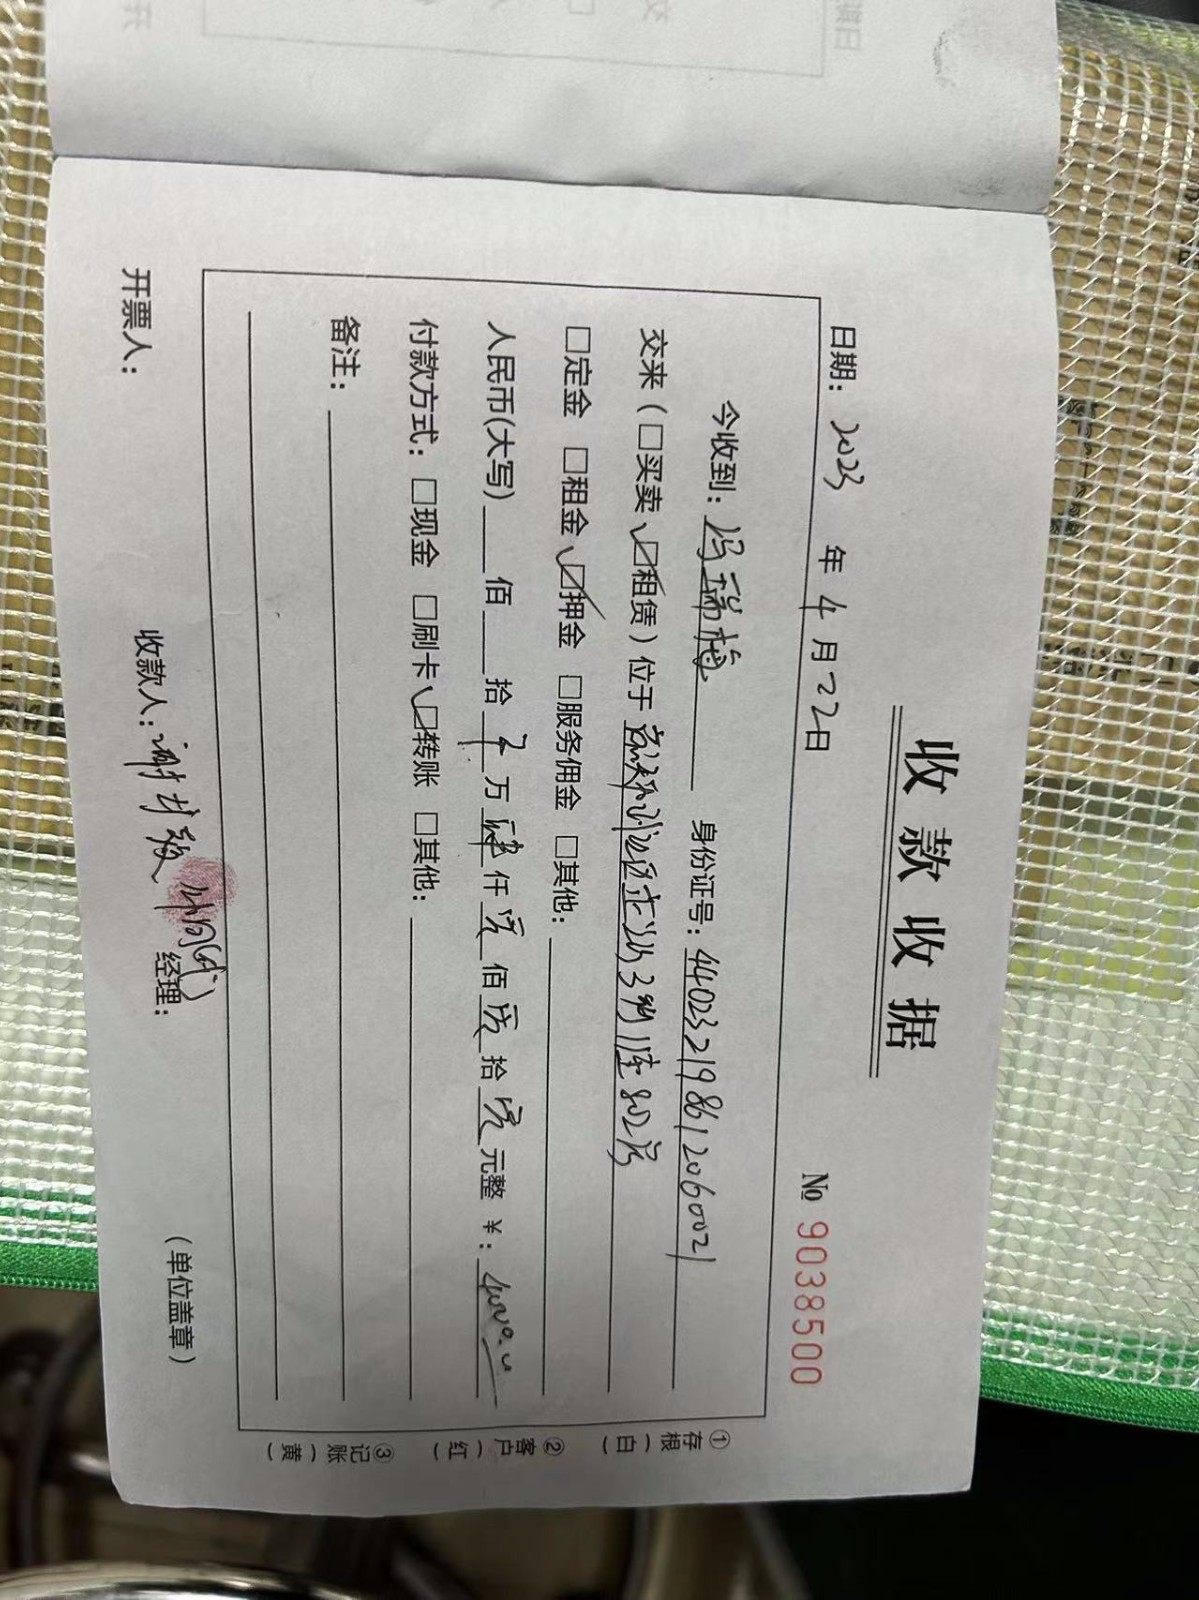 收款收据
№ 9038500
日期: 2023 年 4 月 22日
今收到: 冯瑞梅 身份证号: 440232198612060021
交来（□买卖 ☑租赁）位于 3栋 802房
□定金 □租金 ☑押金 □服务佣金 □其他:
人民币(大写) 佰 拾 零 万 肆 仟 零 佰 零 拾 零 元整 ¥: 4000.00
付款方式: □现金 □刷卡 ☑转账 □其他:
备注:
开票人: 收款人: 谢 (代) 经理: （单位盖章）
①存根（白） ②客户（红） ③记账（黄）